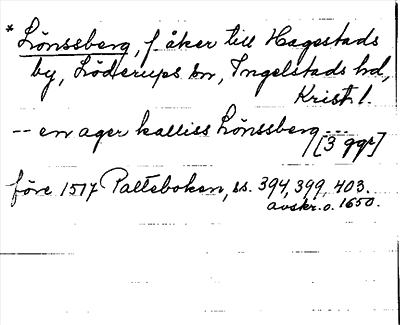 * Lönssberg, f åker till Hagestads
by, Löderups sn, Ingelstads hd,
Krist. l.
-- en ager kalliss Lönssberg ---
[3 ggr]
före 1517 Palteboken, ss. 394, 399, 403.
avskr. o. 1650.